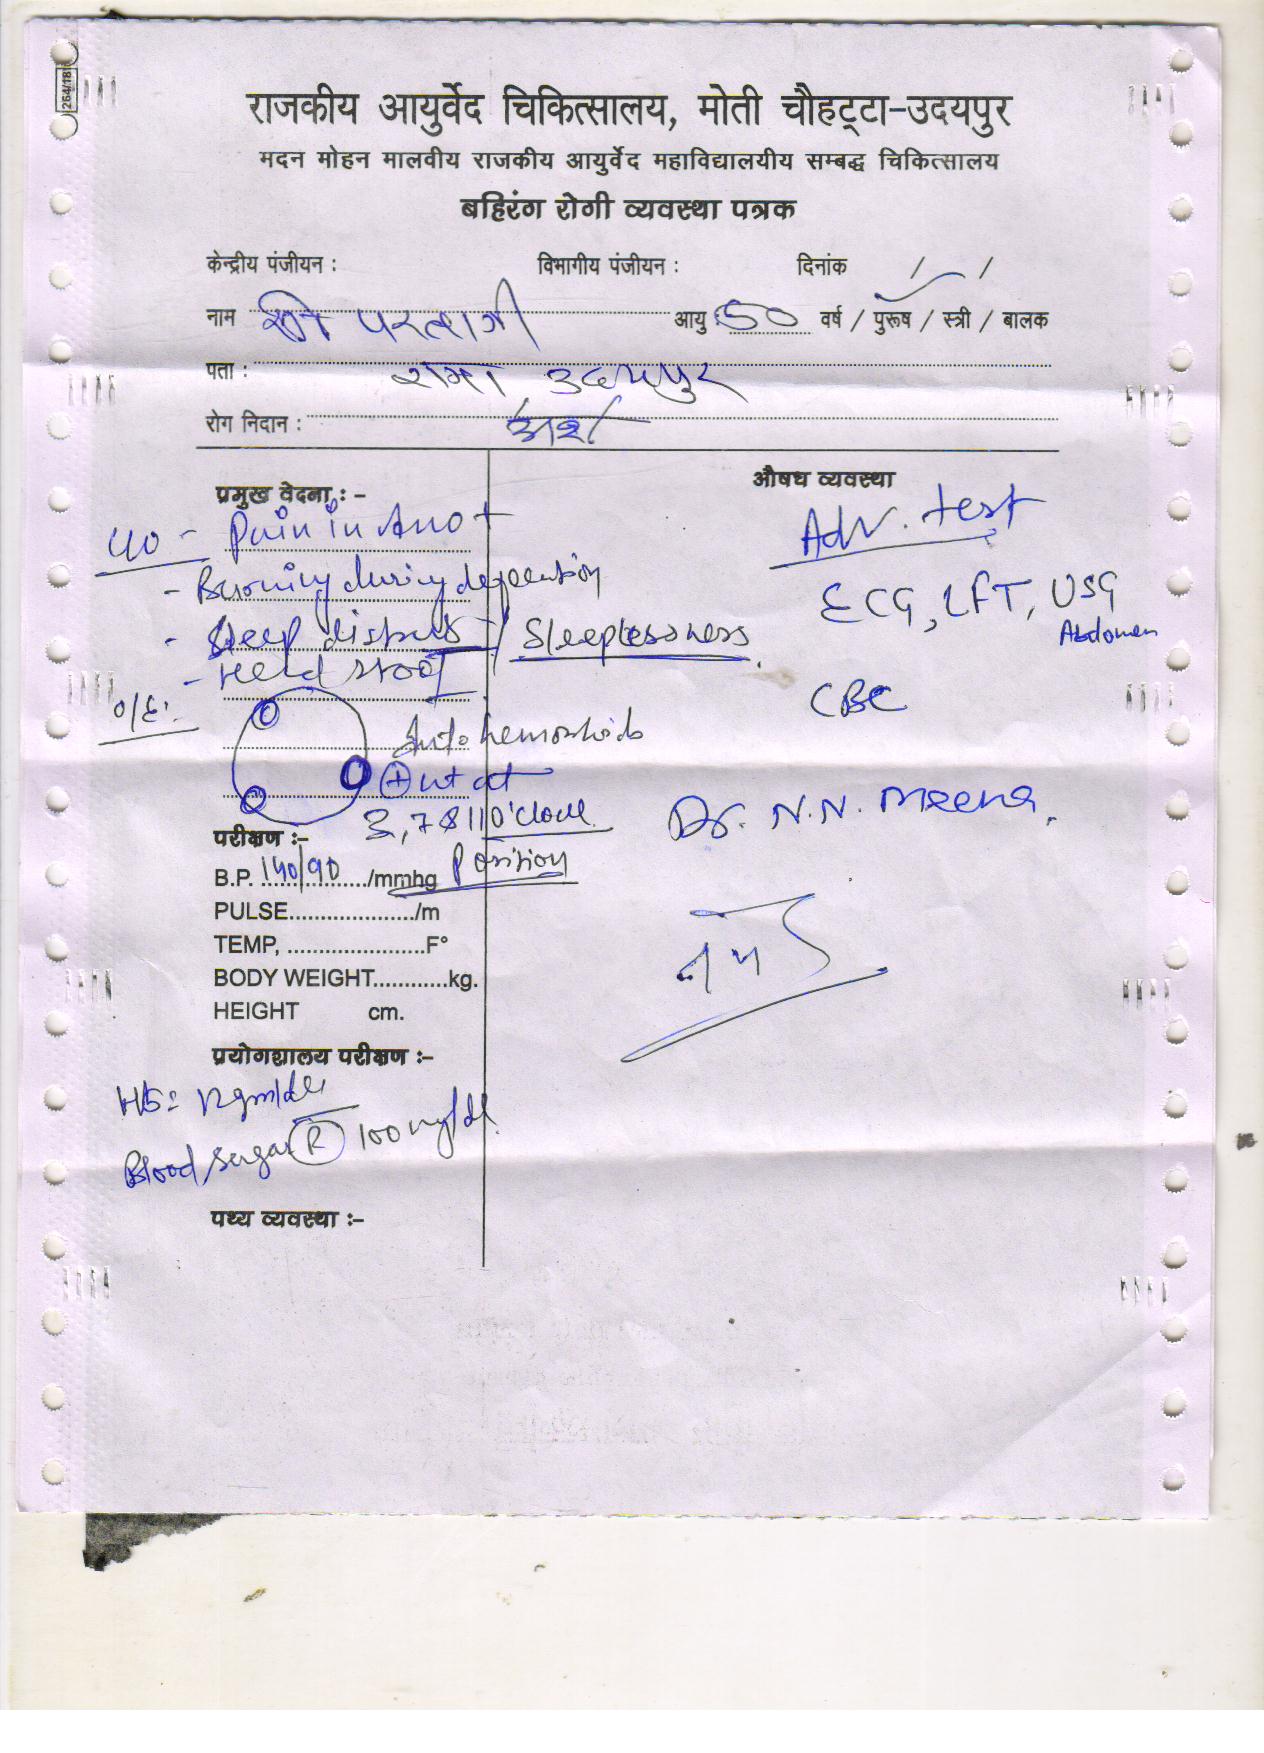 264/18
राजकीय आयुर्वेद चिकित्सालय, मोती चौहट्टा-उदयपुर
मदन मोहन मालवीय राजकीय आयुर्वेद महाविद्यालयीय सम्बद्ध चिकित्सालय
बहिरंग रोगी व्यवस्था पत्रक
केन्द्रीय पंजीयन : विभागीय पंजीयन : दिनांक / /
नाम आयु 50 वर्ष / पुरूष / स्त्री / बालक
पता : उदयपुर
रोग निदान : अर्श
प्रमुख वेदना : -
औषध व्यवस्था
C/O - Pain in Ano +
Adv. test
- Burning during defecation
ECG, LFT, USG
Abdomen
- Sleep disturb / Sleeplessness.
- Hard stool
CBC
O/E:-
Int. hemorrhoids
+ nt at
3, 7 & 11 O'clock
Position
Dr. N.N. Meena.
परीक्षण :-
B.P. 140/90 /mmhg
PULSE..................../m
TEMP, ......................F°
BODY WEIGHT............kg.
HEIGHT cm.
प्रयोगशालय परीक्षण :-
Hb: 12gm/dl
Blood sugar R 100 mg/dl
पथ्य व्यवस्था :-